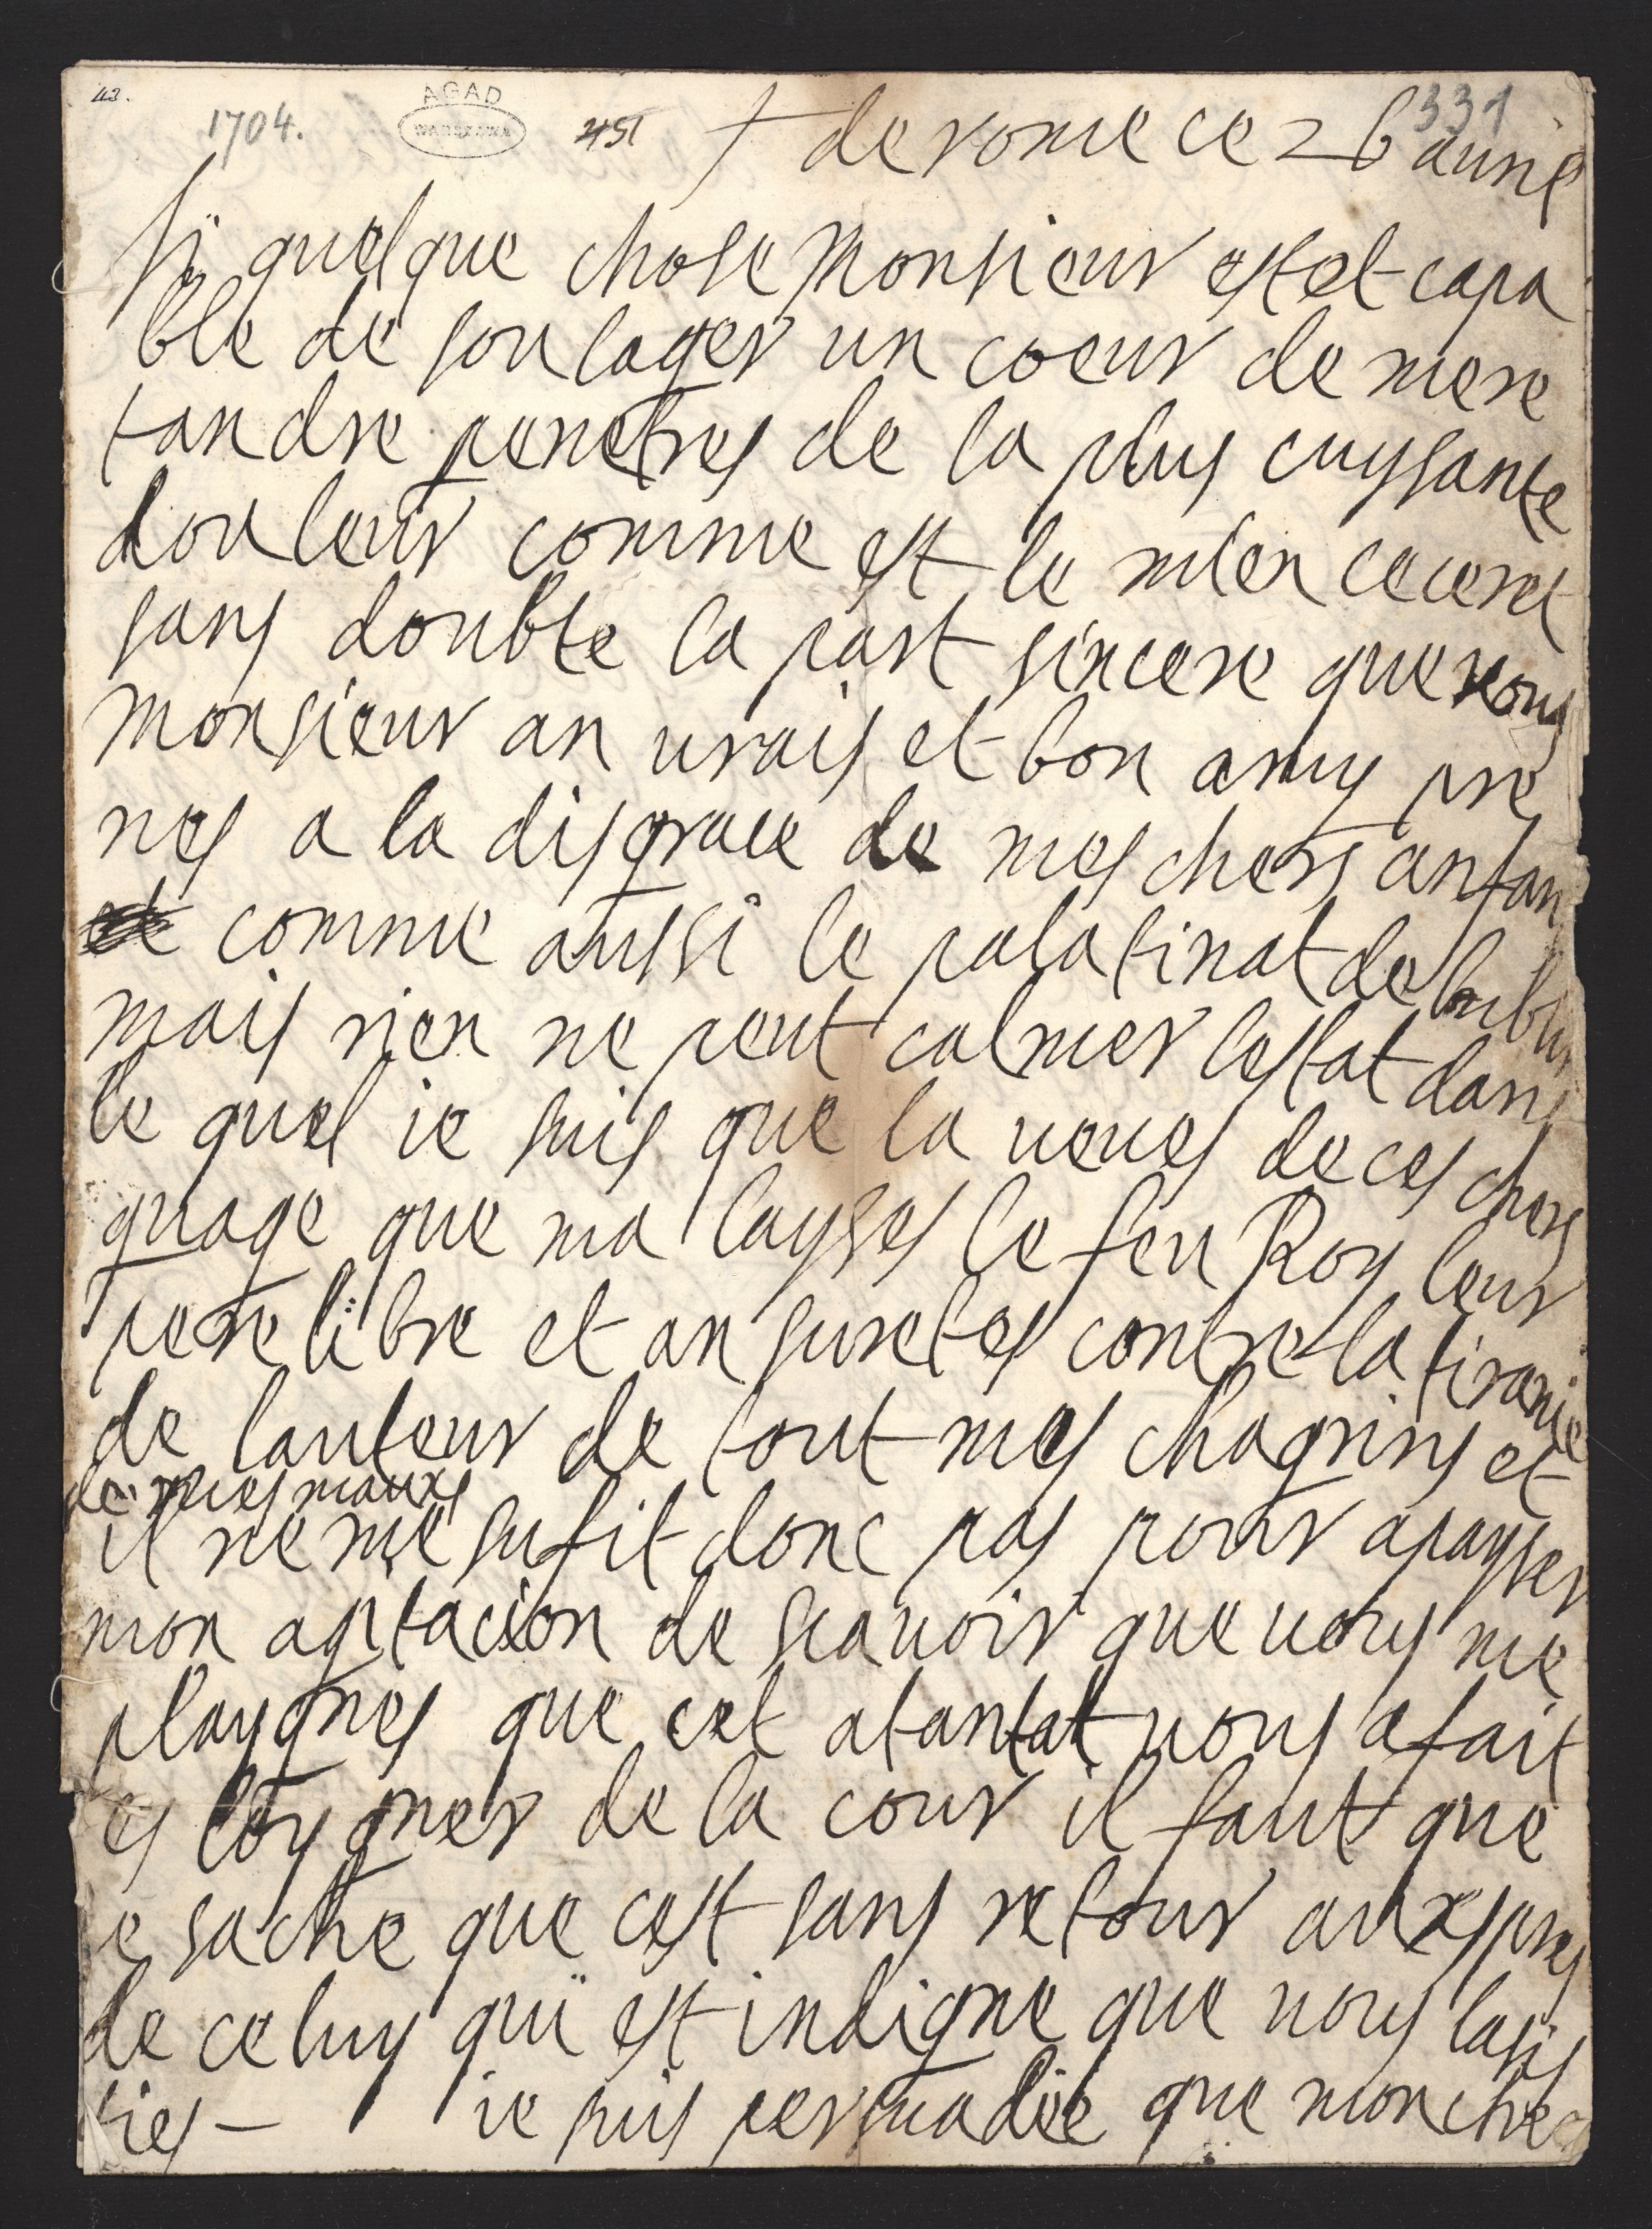 43.
1704.
AGAD
WARSZAWA
451
331
+ de rome ce 26 auril
sy quelque chose Monsieur estet capa
ble de soulager un coeur de mere
tandre penetres de la plus cuysante
douleur comme est le mien ceceret
sans doubte la part sincere que vous
Monsieur an vrais et bon amy pre
nes a la disgrace de mes chers anfan
comme aussi le palatinat de lublin
mais rien ne peut calmer lestat dans
le quel ie suis que la veues de ces chers
guage que ma laysses le feu Roy leur
pere libre et an suretes contre la tiranie
de lauteur de tout mes chagrins et
de mes maux
il ne me sufit donc pas pour apayser
mon agitacion de scauoir que vous me
playgnes que cet atantat vous a fait
es loygner de la cour il faut que
ie sache que cest sans retour auxspres
de celuy qui est indigne que vous lasis
ties – ie suis persuadée que mon cher